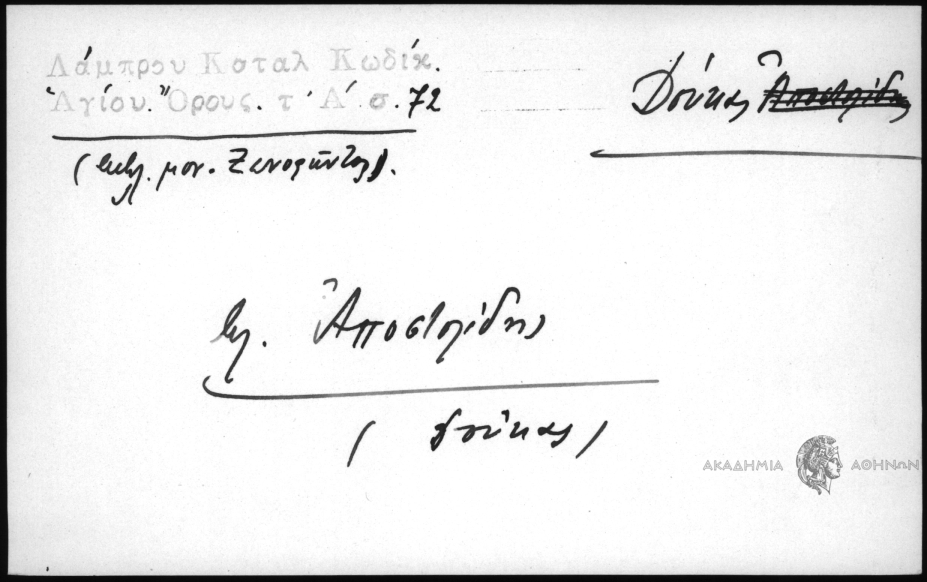 Λάμπρου Καταλ Κωδίκ.
Ἁγίου Ὄρους. τ. Α΄ σ. 72
Δούκας Ἀποστολίδης
( μον. Ξενοφῶντος).
βλ. Ἀποστολίδης
( Δούκας )
ΑΚΑΔΗΜΙΑ ΑΘΗΝΩΝ